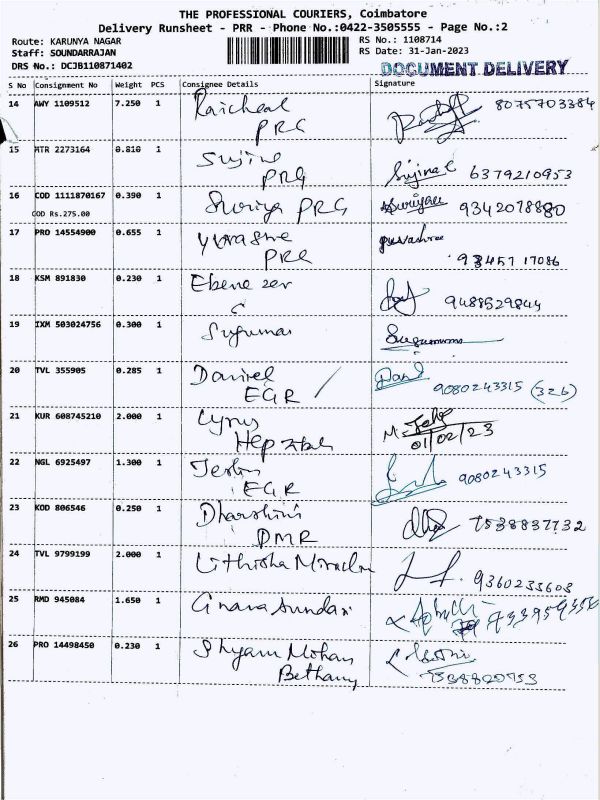 THE PROFESSIONAL COURIERS, Coimbatore
Delivery Runsheet - PRR - Phone No.:0422-3505555 - Page No.:2
Route: KARUNYA NAGAR RS No.: 1108714
Staff: SOUNDARRAJAN RS Date: 31-Jan-2023
DRS No.: DCJB110871402 DOCUMENT DELIVERY
S No Consignment No Weight PCS Consignee Details Signature
14 AWY 1109512 7.250 1 Raicheal 8075703384
PRG
15 MTR 2273164 0.810 1 Sujina Sujina C 6379210953
PRG
16 COD 1111870167 0.390 1 Suriya PRG 9342078880
COD Rs.275.00
17 PRO 14554900 0.655 1 yuvashre yuvashree
PRG 9345717086
18 KSM 891830 0.230 1 Ebenezer 9488529844
19 IXM 503024756 0.300 1 Sugumar
20 TVL 355905 0.285 1 Daniel 9080243315 (326)
EGR
21 KUR 608745210 2.000 1 Cyrus
Hepzibah 01/02/23
22 NGL 6925497 1.300 1 Jeslin 9080243315
EGR
23 KOD 806546 0.250 1 Dharshini 7538837732
DMR
24 TVL 9799199 2.000 1 Lithisha 9360233603
25 RMD 945084 1.650 1 Gnana Sundari
26 PRO 14498450 0.230 1 Shyam Mohan
Bethany 7538820753